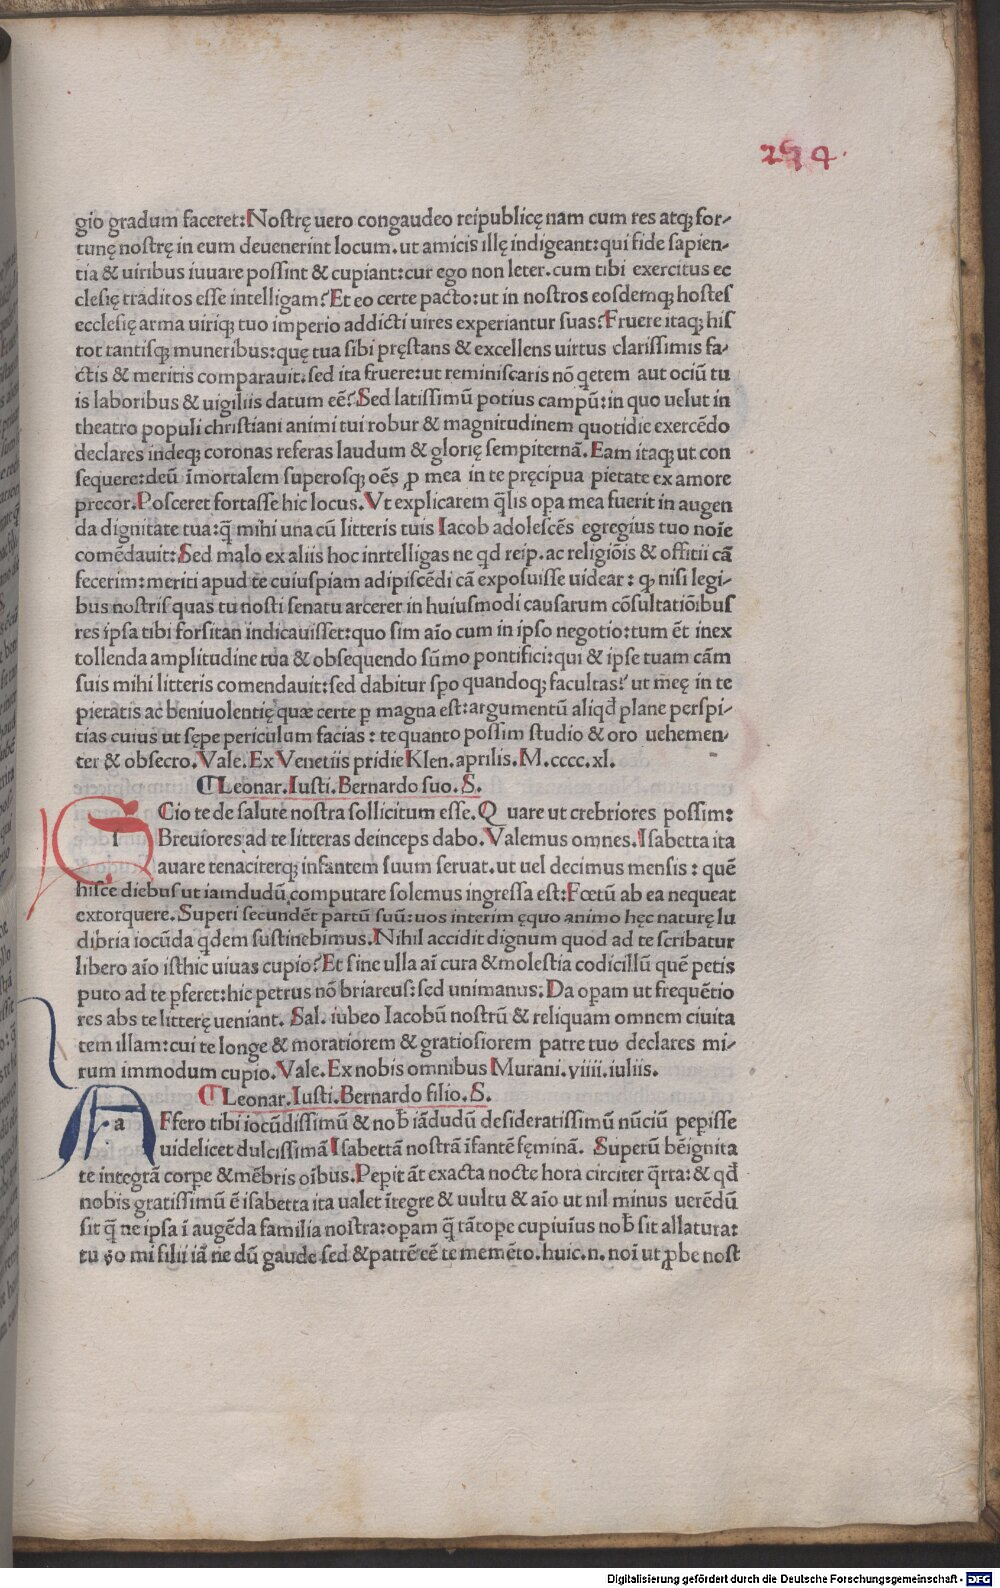 294.
gio gradum faceret: Nostrę uero congaudeo reipublicę nam cum res atqꝫ for-
tunę nostrę in eum deuenerint locum. ut amicis illę indigeant: qui fide sapien-
tia & uiribus iuuare possint & cupiant: cur ego non leter. cum tibi exercitus ec
clesię traditos esse intelligam? Et eo certe pacto: ut in nostros eosdemqꝫ hostes
ecclesię arma uiriqꝫ tuo imperio addicti uires experiantur suas? Fruere itaqꝫ his
tot tantisqꝫ muneribus: quę tua sibi pręstans & excellens uirtus clarissimis fa-
ctis & meritis comparauit. sed ita fruere: ut reminiscaris nō qetem aut ociū tu
is laboribus & uigiliis datum eē? Sed latissimū potius campū: in quo uelut in
theatro populi christiani animi tui robur & magnitudinem quotidie exercēdo
declares indeqꝫ coronas referas laudum & glorię sempiternā. Eam itaqꝫ ut con
sequere: deū īmortalem superosqꝫ oēs ꝓ mea in te pręcipua pietate ex amore
precor. Posceret fortasse hic locus. Vt explicarem q̄lis opa mea fuerit in augen
da dignitate tua: q̄ mihi una cū litteris tuis Iacob adolescēs egregius tuo noīe
comēdauit: Sed malo ex aliis hoc inrtelligas ne qd reip. ac religiōis & offitii cā
fecerim: meriti apud te cuiuspiam adipiscēdi cā exposuisse uidear: qꝫ nisi legi-
bus nostris quas tu nosti senatu arcerer in huiusmodi causarum cōsultatiōibus
res ipsa tibi forsitan indicauisset: quo sim aīo cum in ipso negotio: tum ēt inex
tollenda amplitudine tua & obsequendo sūmo pontifici: qui & ipse tuam cām
suis mihi litteris comendauit: sed dabitur spo quandoqꝫ facultas? ut meę in te
pietatis ac beniuolentię quæ certe p magna est: argumentū aliqd plane perspi-
tias cuius ut sępe periculum facias: te quanto possim studio & oro uehemen-
ter & obsecro. Vale. Ex Venetiis pridie Klen. aprilis. M.cccc.xl.
¶ Leonar. Iusti. Bernardo suo. S.
s Cio te de salute nostra sollicitum esse. Quare ut crebriores possim:
Breuiores ad te litteras deinceps dabo. Valemus omnes. Isabetta ita
auare tenaciterqꝫ infantem suum seruat. ut uel decimus mensis: quē
hisce diebus ut iamdudū computare solemus ingressa est: Fœtū ab ea nequeat
extorquere. Superi secundēt partū suū: uos interim ęquo animo hęc naturę lu
dibria iocūda qdem sustinebimus. Nihil accidit dignum quod ad te scribatur
libero aīo isthic uiuas cupio? Et sine ulla aī cura & molestia codicillū quē petis
puto ad te pferet: hic petrus nō briareus: sed unimanus. Da opam ut frequētio
res abs te litterę ueniant. Sal. iubeo Iacobū nostrū & reliquam omnem ciuita
tem illam: cui te longe & moratiorem & gratiosiorem patre tuo declares mi-
rum immodum cupio. Vale. Ex nobis omnibus Murani. viiii. iuliis.
¶ Leonar. Iusti. Bernardo filio. S.
a Ffero tibi iocūdissimū & nob̄ iādudū desideratissimū nūciū pepisse
uidelicet dulcissimā Isabettā nostrā ifantē fęminā. Superū bēignita
te integrā corpe & mēbris oībus. Pepit āt exacta nocte hora circiter q̄rta: & qd̄
nobis gratissimū ē isabetta ita ualet ītegre & uultu & aīo ut nil minus uerēdū
sit q̄ ne ipsa ī augēda familia nostra: opam q̄ tātope cupiuīus nob̄ sit allatura:
tu ꝟo mi filii iā ne dū gaude sed & patrē eē te memēto. huic. n. noī ut ꝓbe nost
Digitalisierung gefördert durch die Deutsche Forschungsgemeinschaft - DFG